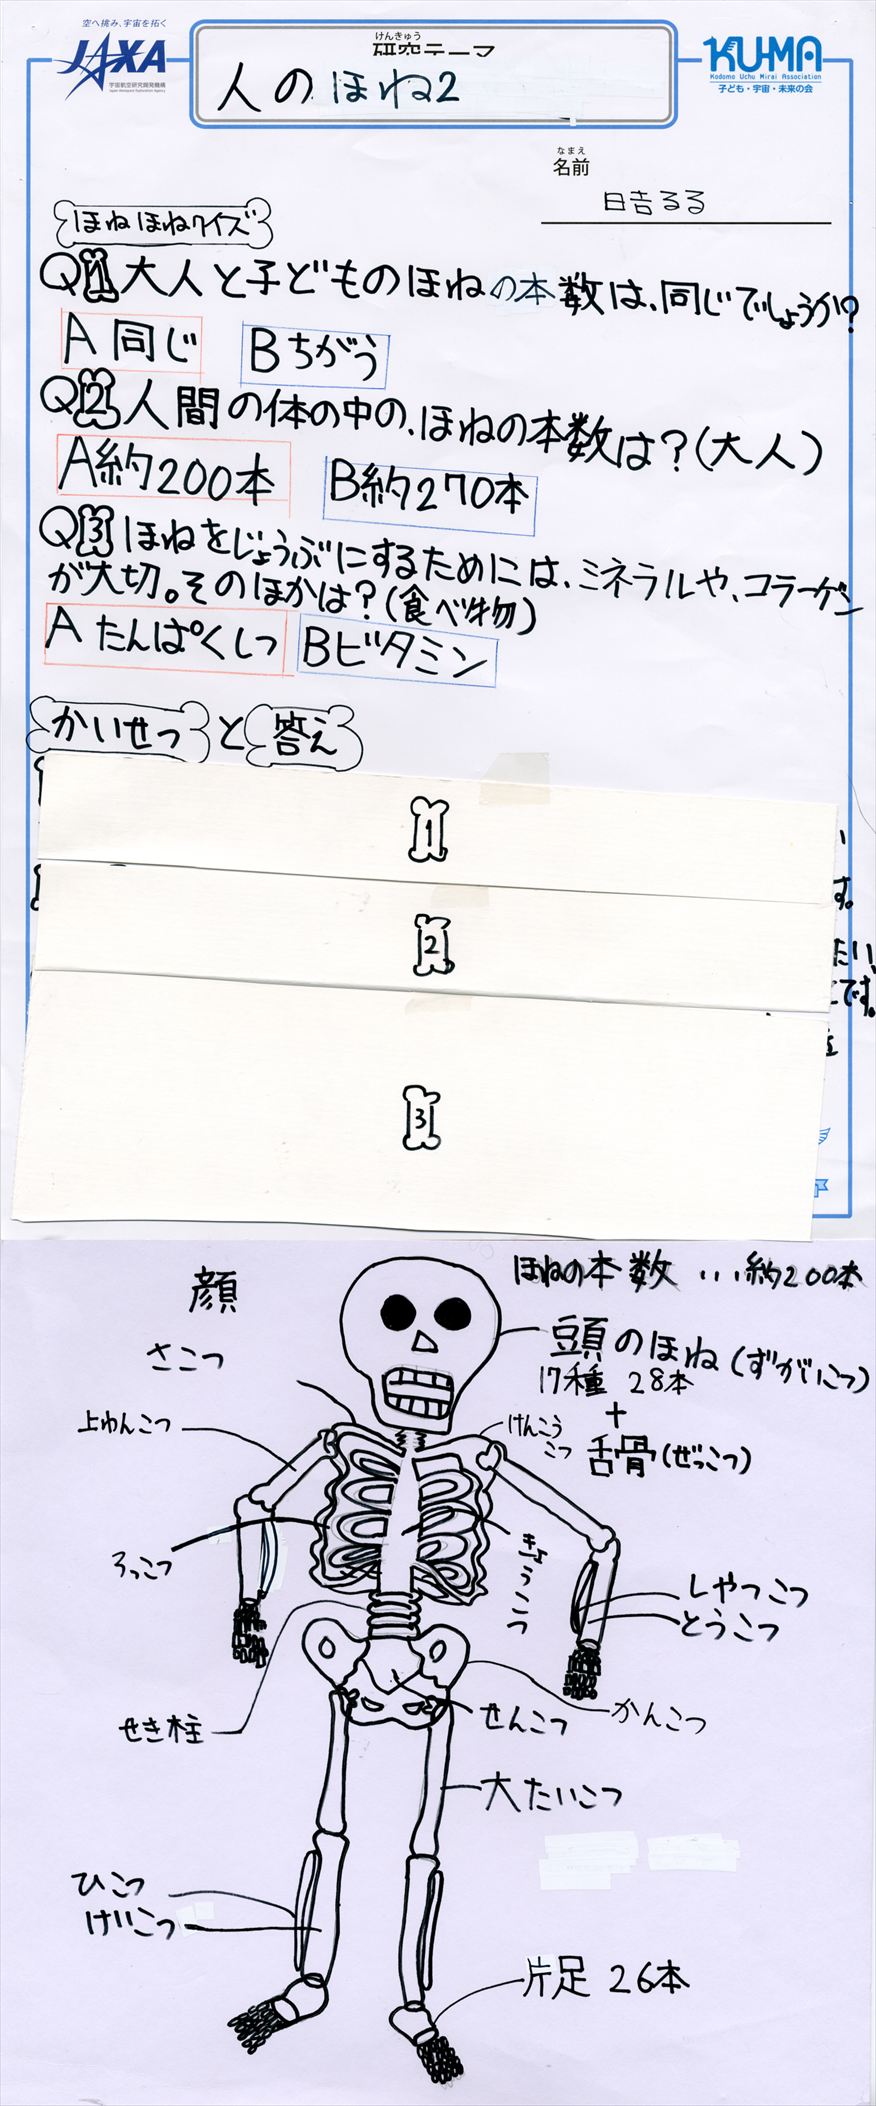 空へ挑み、宇宙を拓く
JAXA
宇宙航空研究開発機構
Japan Aerospace Exploration Agency
けんきゅう
研究テーマ
人のほね2
KUMA
Kodomo Uchu Mirai Association
子ども・宇宙・未来の会
なまえ
名前
日吉るる
ほねほねクイズ
Q1大人と子どものほねの本数は、同じでしょうか?
A同じ Bちがう
Q2人間の体の中の、ほねの本数は?(大人)
A約200本 B約270本
Q3ほねをじょうぶにするためには、ミネラルや、コラーゲン
が大切。そのほかは?(食べ物)
Aたんぱくしつ Bビタミン
かいせつと答え
1
す。
2
たい、
です。
3
ほねの本数...約200本
顔
頭のほね(ずがいこつ)
17種 28本
+
舌骨(ぜっこつ)
さこつ
上わんこつ
けんこう
こつ
ろっこつ
きょうこつ
しやっこつ
とうこつ
せき柱
せんこつ
かんこつ
大たいこつ
ひこつ
けいこつ
片足 26本